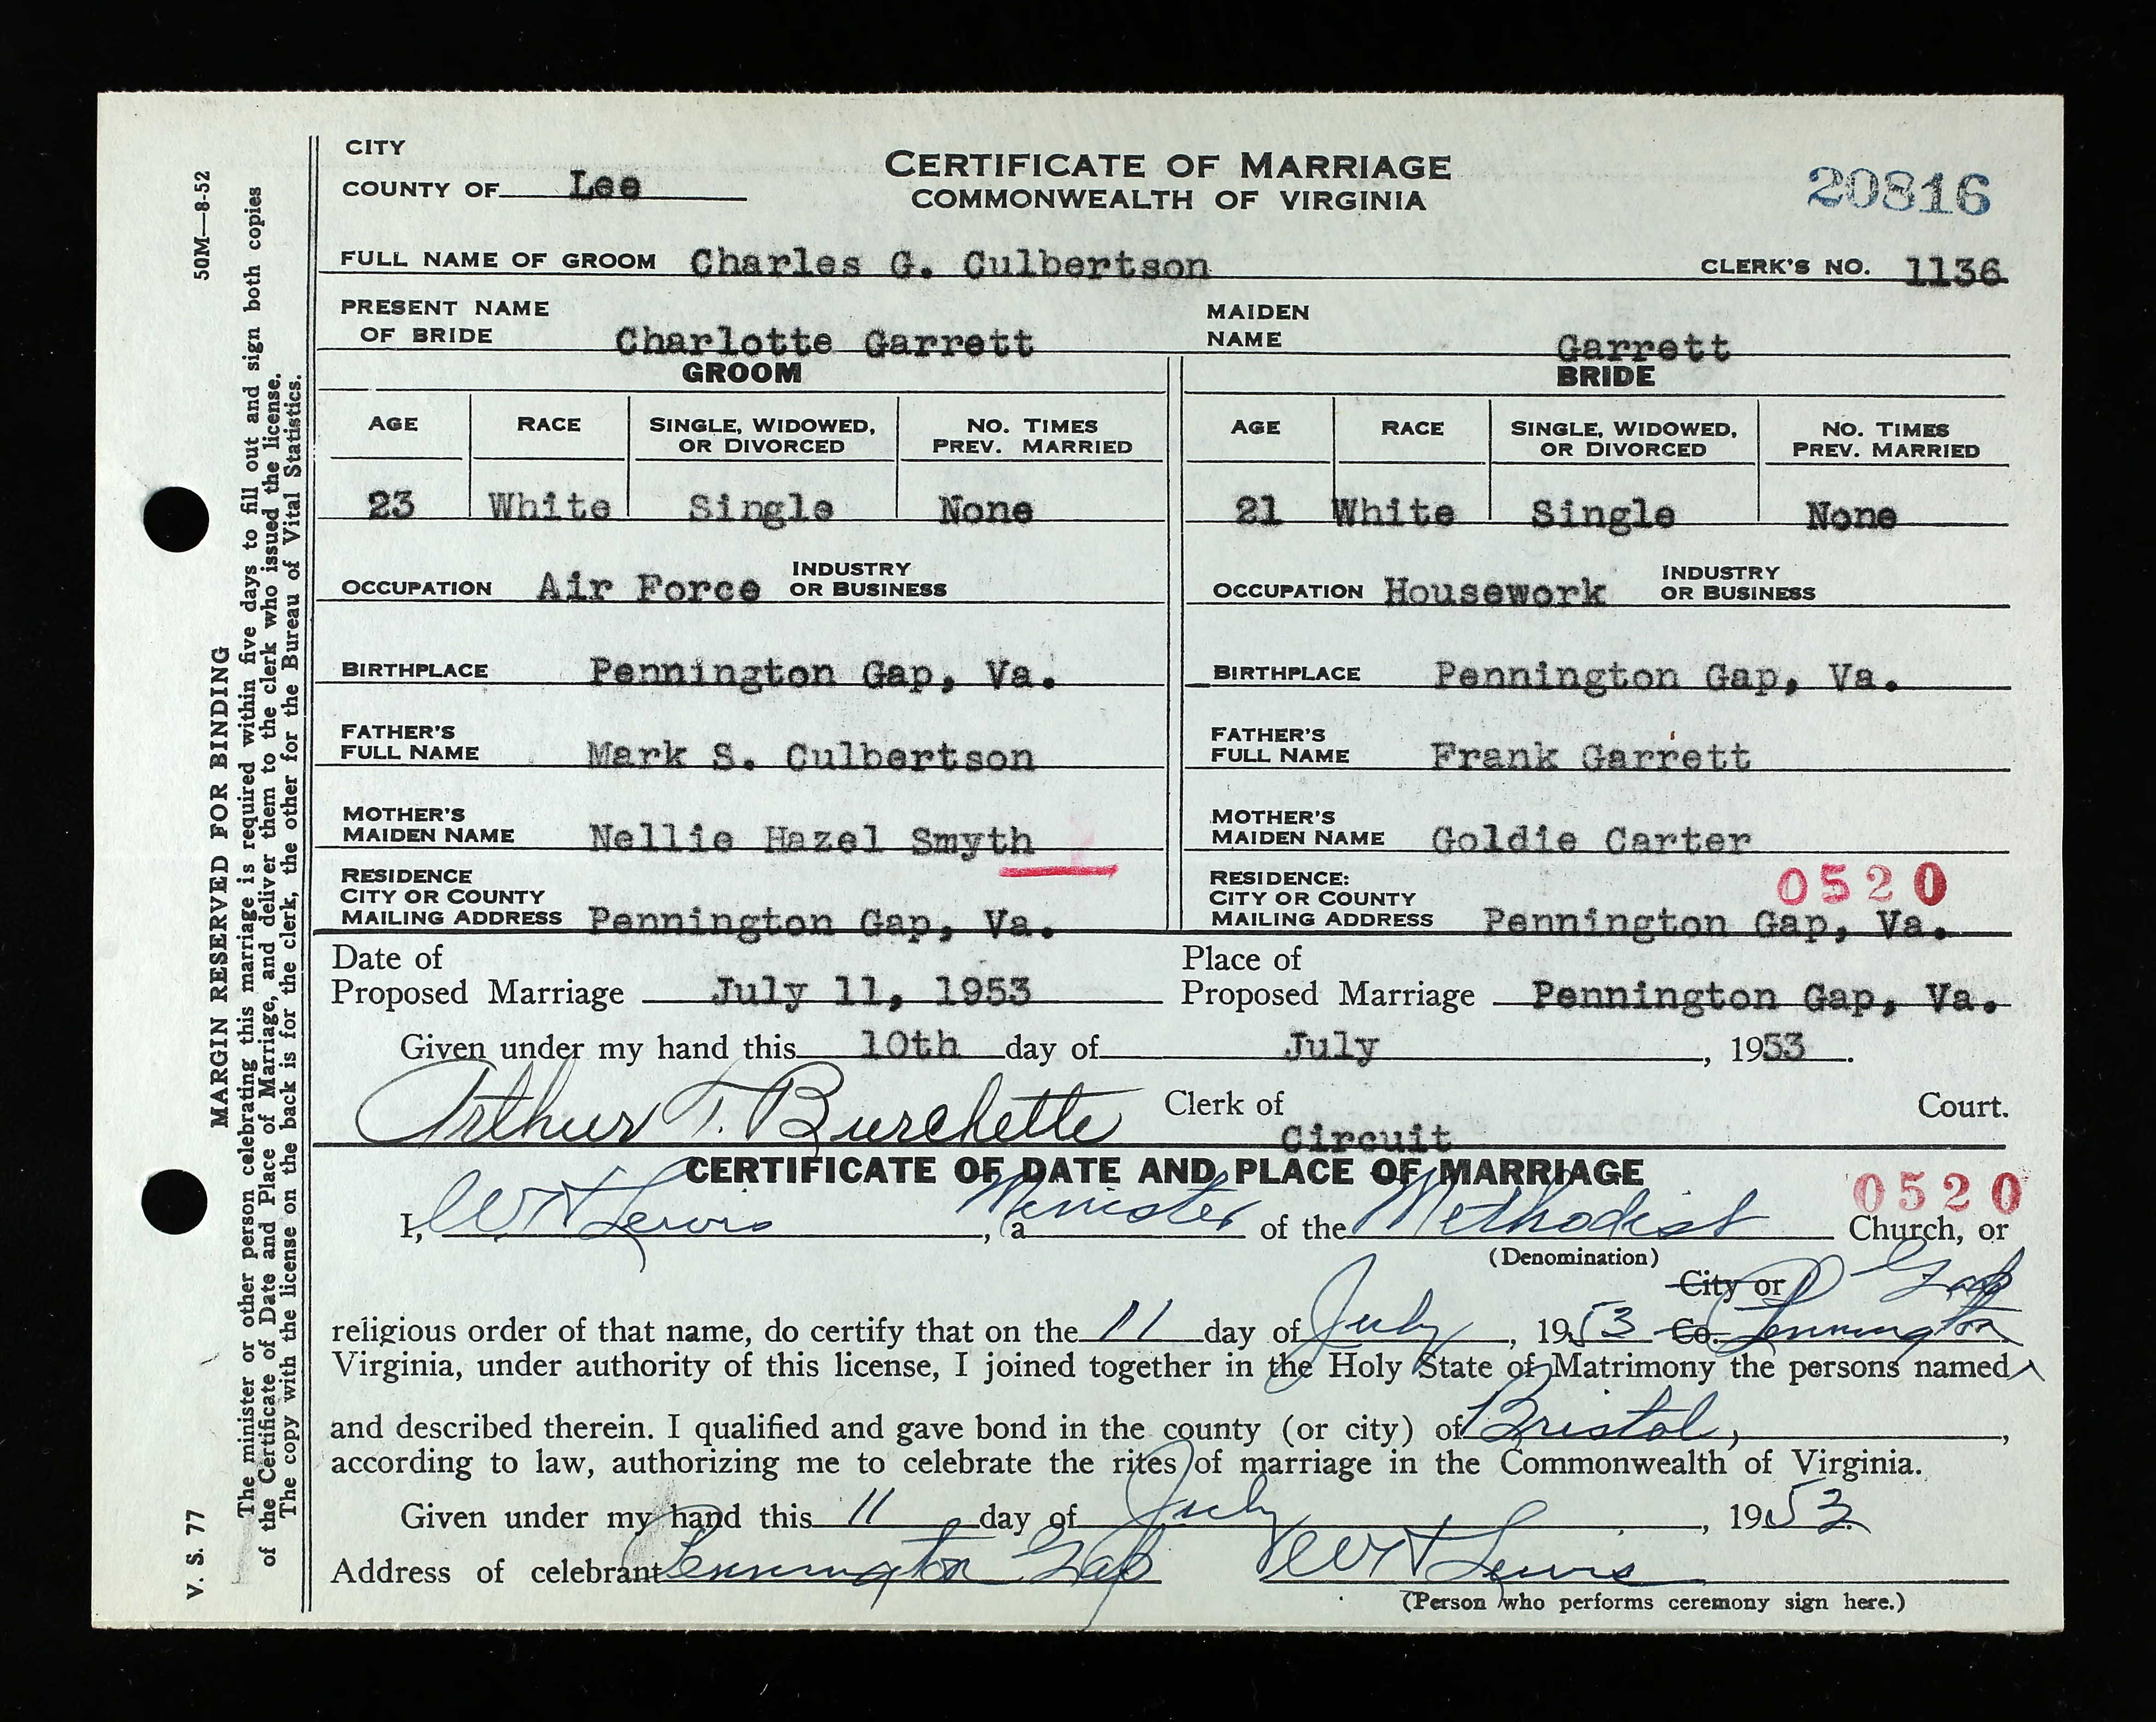 CITY
COUNTY OF Lee
CERTIFICATE OF MARRIAGE
COMMONWEALTH OF VIRGINIA
20816
FULL NAME OF GROOM Charles G. Culbertson
CLERK'S NO. 1136
PRESENT NAME
OF BRIDE Charlotte Garrett
MAIDEN
NAME Garrett
GROOM
BRIDE
AGE RACE SINGLE, WIDOWED, OR DIVORCED NO. TIMES PREV. MARRIED
23 White Single None
AGE RACE SINGLE, WIDOWED, OR DIVORCED NO. TIMES PREV. MARRIED
21 White Single None
OCCUPATION Air Force INDUSTRY OR BUSINESS
OCCUPATION Housework INDUSTRY OR BUSINESS
BIRTHPLACE Pennington Gap, Va.
BIRTHPLACE Pennington Gap, Va.
FATHER'S
FULL NAME Mark S. Culbertson
FATHER'S
FULL NAME Frank Garrett
MOTHER'S
MAIDEN NAME Nellie Hazel Smyth
MOTHER'S
MAIDEN NAME Goldie Carter
RESIDENCE
CITY OR COUNTY
MAILING ADDRESS Pennington Gap, Va.
RESIDENCE:
CITY OR COUNTY
MAILING ADDRESS Pennington Gap, Va.
0520
Date of
Proposed Marriage July 11, 1953
Place of
Proposed Marriage Pennington Gap, Va.
Given under my hand this 10th day of July, 1953.
Arthur T. Burchette Clerk of Circuit Court.
CERTIFICATE OF DATE AND PLACE OF MARRIAGE
0520
I, W N Lewis, a Minister of the Methodist Church, or
(Denomination)
City or P Gap
religious order of that name, do certify that on the 11 day of July, 1953 Co. Pennington
Virginia, under authority of this license, I joined together in the Holy State of Matrimony the persons named
and described therein. I qualified and gave bond in the county (or city) of Bristol,
according to law, authorizing me to celebrate the rites of marriage in the Commonwealth of Virginia.
Given under my hand this 11 day of July, 1953.
Address of celebrant Pennington Gap W N Lewis
(Person who performs ceremony sign here.)
V. S. 77
MARGIN RESERVED FOR BINDING
50M—8-52
The minister or other person celebrating this marriage is required within five days to fill out and sign both copies
of the Certificate of Date and Place of Marriage, and deliver them to the clerk who issued the license.
The copy with the license on the back is for the clerk, the other for the Bureau of Vital Statistics.